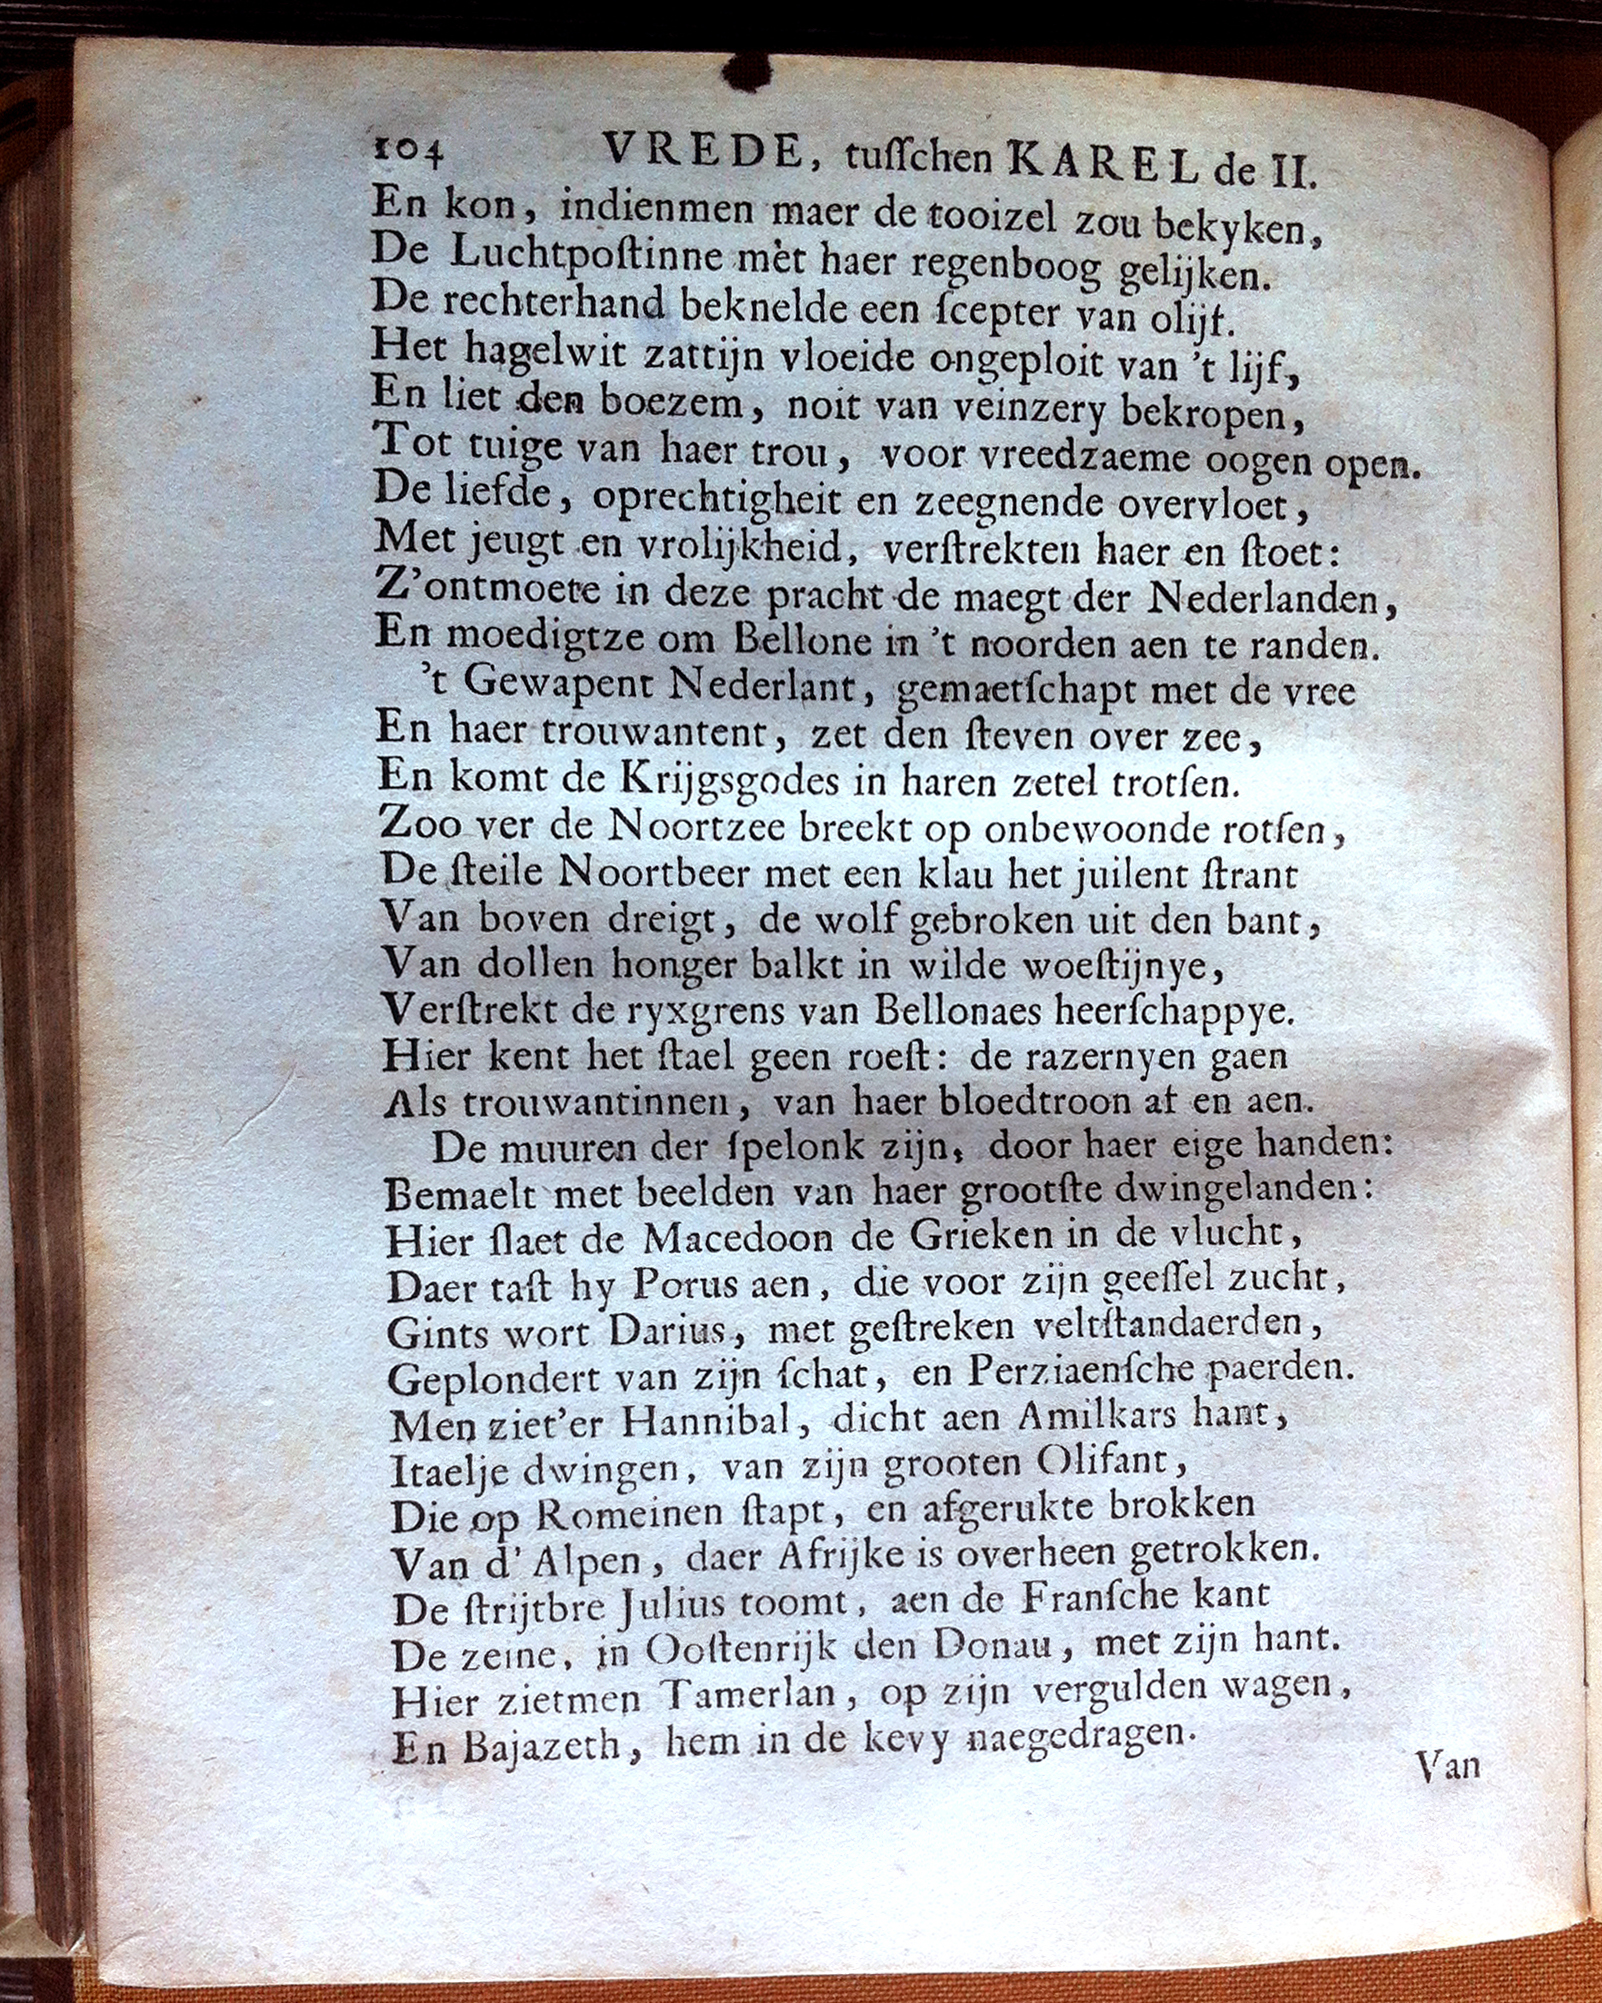 104 VREDE, tuſſchen KAREL de II.
En kon, indienmen maer de tooizel zou bekyken,
De Luchtpoſtinne mèt haer regenboog gelijken.
De rechterhand beknelde een ſcepter van olijf.
Het hagelwit zattijn vloeide ongeploit van 't lijf,
En liet den boezem, noit van veinzery bekropen,
Tot tuige van haer trou, voor vreedzaeme oogen open.
De liefde, oprechtigheit en zeegnende overvloet,
Met jeugt en vrolijkheid, verſtrekten haer en ſtoet:
Z'ontmoete in deze pracht de maegt der Nederlanden,
En moedigtze om Bellone in 't noorden aen te randen.
't Gewapent Nederlant, gemaetſchapt met de vree
En haer trouwantent, zet den ſteven over zee,
En komt de Krijgsgodes in haren zetel trotſen.
Zoo ver de Noortzee breekt op onbewoonde rotſen,
De ſteile Noortbeer met een klau het juilent ſtrant
Van boven dreigt, de wolf gebroken uit den bant,
Van dollen honger balkt in wilde woeſtijnye,
Verſtrekt de ryxgrens van Bellonaes heerſchappye.
Hier kent het ſtael geen roeſt: de razernyen gaen
Als trouwantinnen, van haer bloedtroon af en aen.
De muuren der ſpelonk zijn, door haer eige handen:
Bemaelt met beelden van haer grootſte dwingelanden:
Hier ſlaet de Macedoon de Grieken in de vlucht,
Daer taſt hy Porus aen, die voor zijn geeſſel zucht,
Gints wort Darius, met geſtreken veltſtandaerden,
Geplondert van zijn ſchat, en Perziaenſche paerden.
Men ziet'er Hannibal, dicht aen Amilkars hant,
Itaelje dwingen, van zijn grooten Olifant,
Die op Romeinen ſtapt, en afgerukte brokken
Van d' Alpen, daer Afrijke is overheen getrokken.
De ſtrijtbre Julius toomt, aen de Franſche kant
De zeine, in Ooſtenrijk den Donau, met zijn hant.
Hier zietmen Tamerlan, op zijn vergulden wagen,
En Bajazeth, hem in de kevy naegedragen.
Van